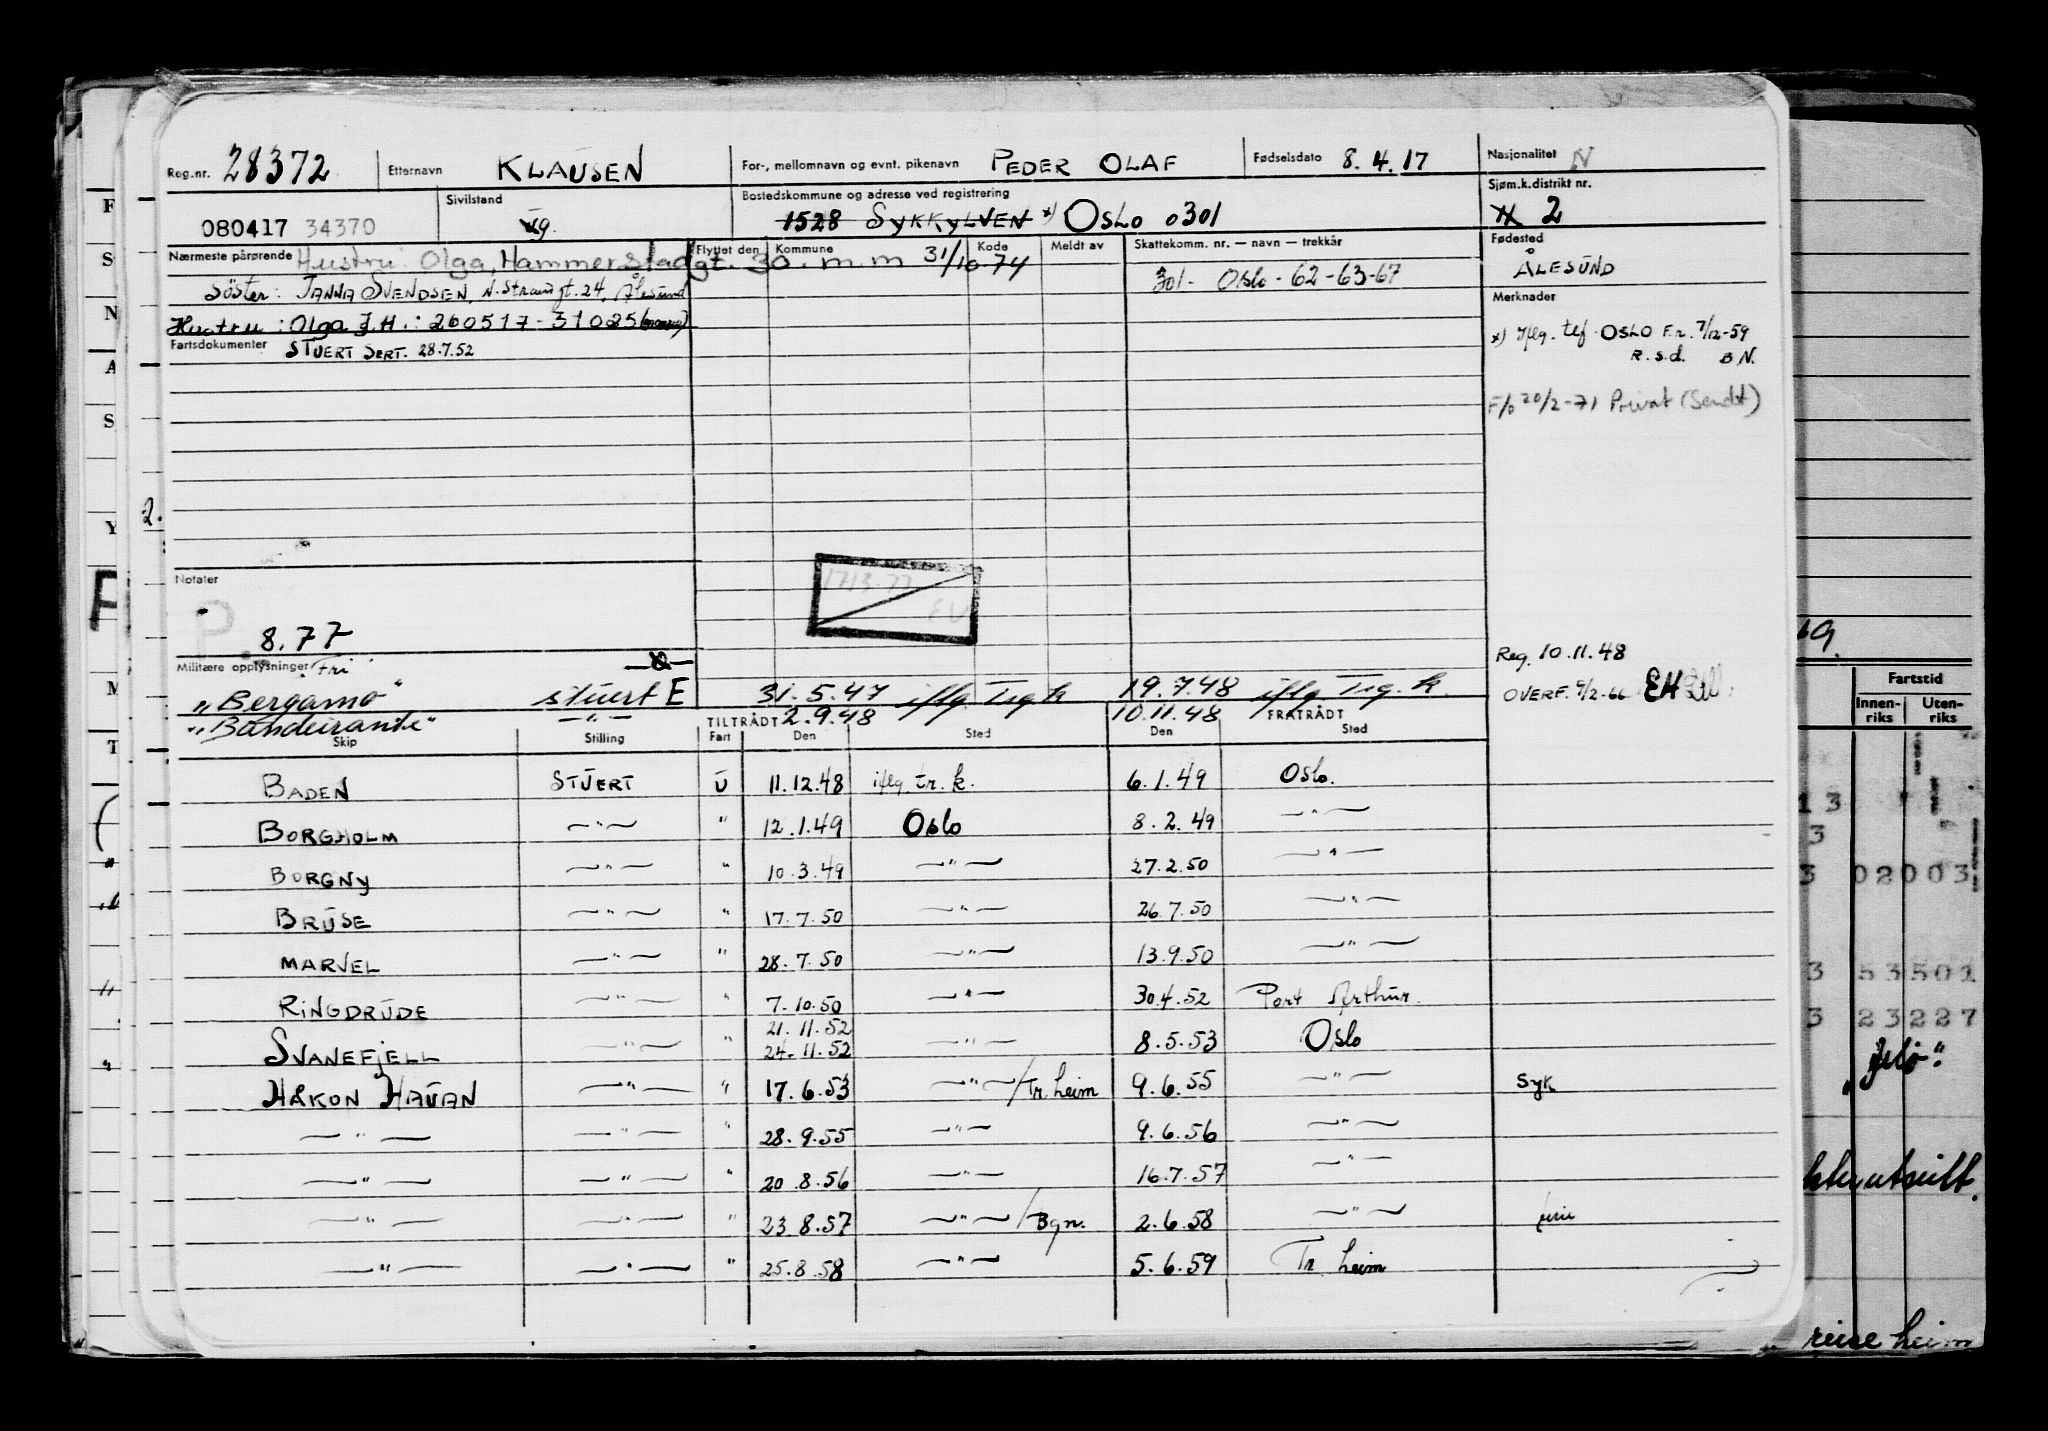 Reg.nr. 28372 Etternavn KLAUSEN For-, mellomnavn og evnt. pikenavn PEDER OLAF Fødselsdato 8.4.17 Nasjonalitet N
080417 34370 Sivilstand g. Bostedskommune og adresse ved registrering 1528 SYKKYLVEN x) OSLO 0301 Sjøm.k.distrikt nr. 2
Nærmeste pårørende Hustru: Olga, Hammerstadgt. 30. m.m 31/10-74 Flyttet den Kommune Kode Meldt av Skattekomm. nr. — navn — trekkår Fødested
SØSTER: JANNA SVENDSEN, N. Strandgt. 24, Ålesund 301- Oslo-62-63-67 ÅLESUND
Hustru: Olga J.H.: 260517-31025 Merknader
Fartsdokumenter STUERT SERT. 28.7.52 x) Iflg. tlf. OSLO F.r. 7/12-59
R.s.d. B.N.
F/o 20/2-71 Privat (Sendt)
Notater
1713.77
8.77
Militære opplysninger: Fri Reg. 10.11.48
"Bergamo" stuert E 31.5.47 iflg Trg.k 19.7.48 iflg. Trg.k. OVERF. 9/2-66 EH
"Bandeirante" —"— TILTRÅDT 2.9.48 10.11.48 FRATRÅDT
Skip Stilling Fart Den Sted Den Sted
BADEN STUERT U 11.12.48 iflg. tr.k. 6.1.49 Oslo.
BORGHOLM —"— " 12.1.49 Oslo 8.2.49 —"—
BORGNY —"— " 10.3.49 —"— 27.2.50 —"—
BRUSE —"— " 17.7.50 —"— 26.7.50 —"—
MARVEL —"— " 28.7.50 —"— 13.9.50 —"—
RINGDRUDE —"— " 7.10.50 —"— 30.4.52 Port Arthur.
21.11.52
SVANEFJELL —"— " 24.11.52 —"— 8.5.53 Oslo
HÅKON HAUAN —"— " 17.6.53 —"—/Tr.heim 9.6.55 —"— Syk
—"— —"— " 28.9.55 —"— 9.6.56 —"—
—"— —"— " 20.8.56 —"— 16.7.57 —"—
—"— —"— " 23.8.57 —"—/Bgn. 2.6.58 —"— ferie
—"— —"— " 25.8.58 —"— 5.6.59 Tr.heim
F
S
N
A
S
Y
2.
M
T
Fartstid
Innen-riks Uten-riks
13
3
3 02003
3 53501
3 23227
reise heim